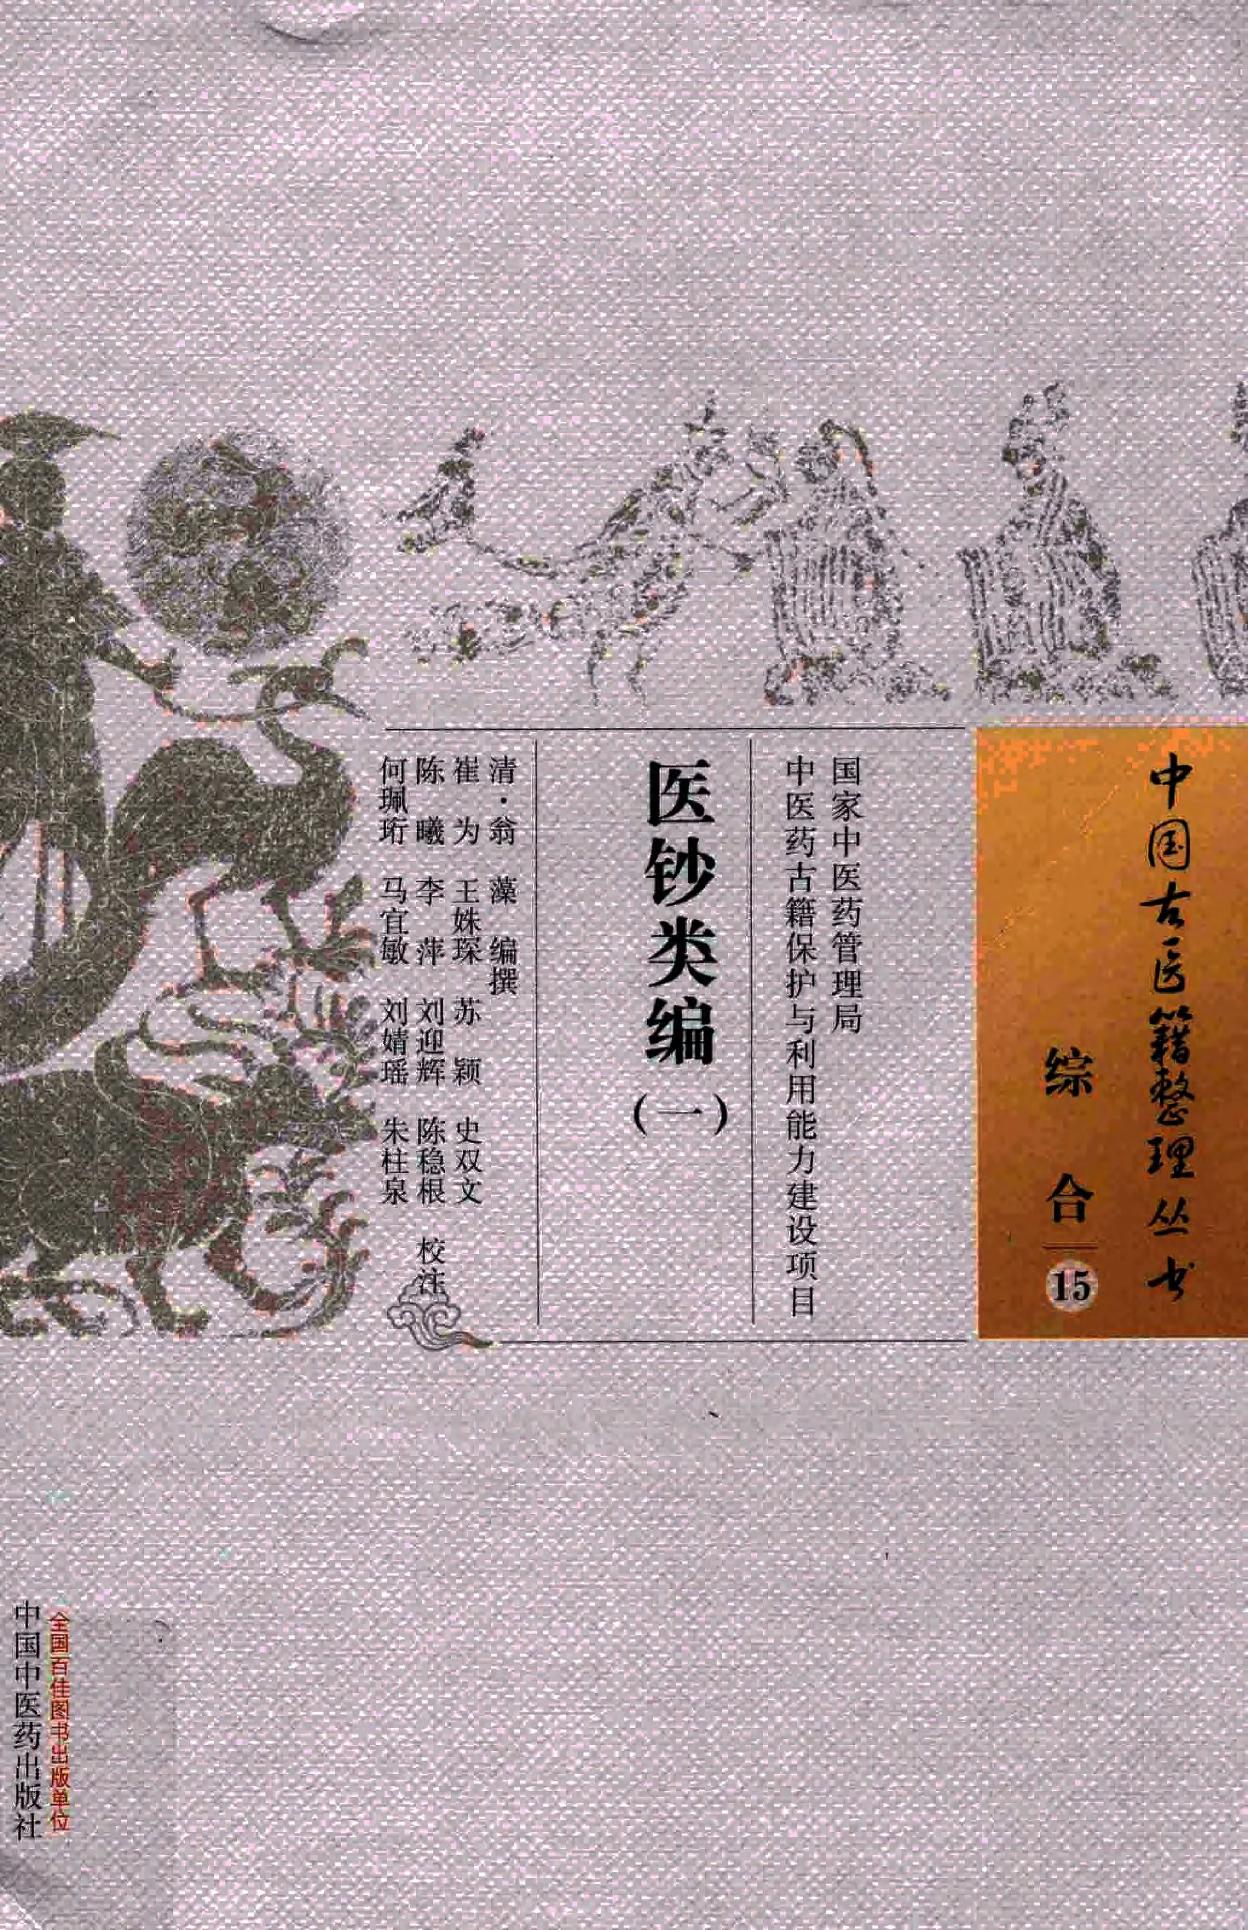 中国古医籍整理丛书
综合
15
国家中医药管理局
中医药古籍保护与利用能力建设项目
医钞类编
(一)
清·翁藻 编撰
崔为 王姝琛 苏颖 史双文
陈曦 李萍 刘迎辉 陈稳根 校注
何珮珩 马宜敏 刘婧瑶 朱柱泉
全国百佳图书出版单位
中国中医药出版社